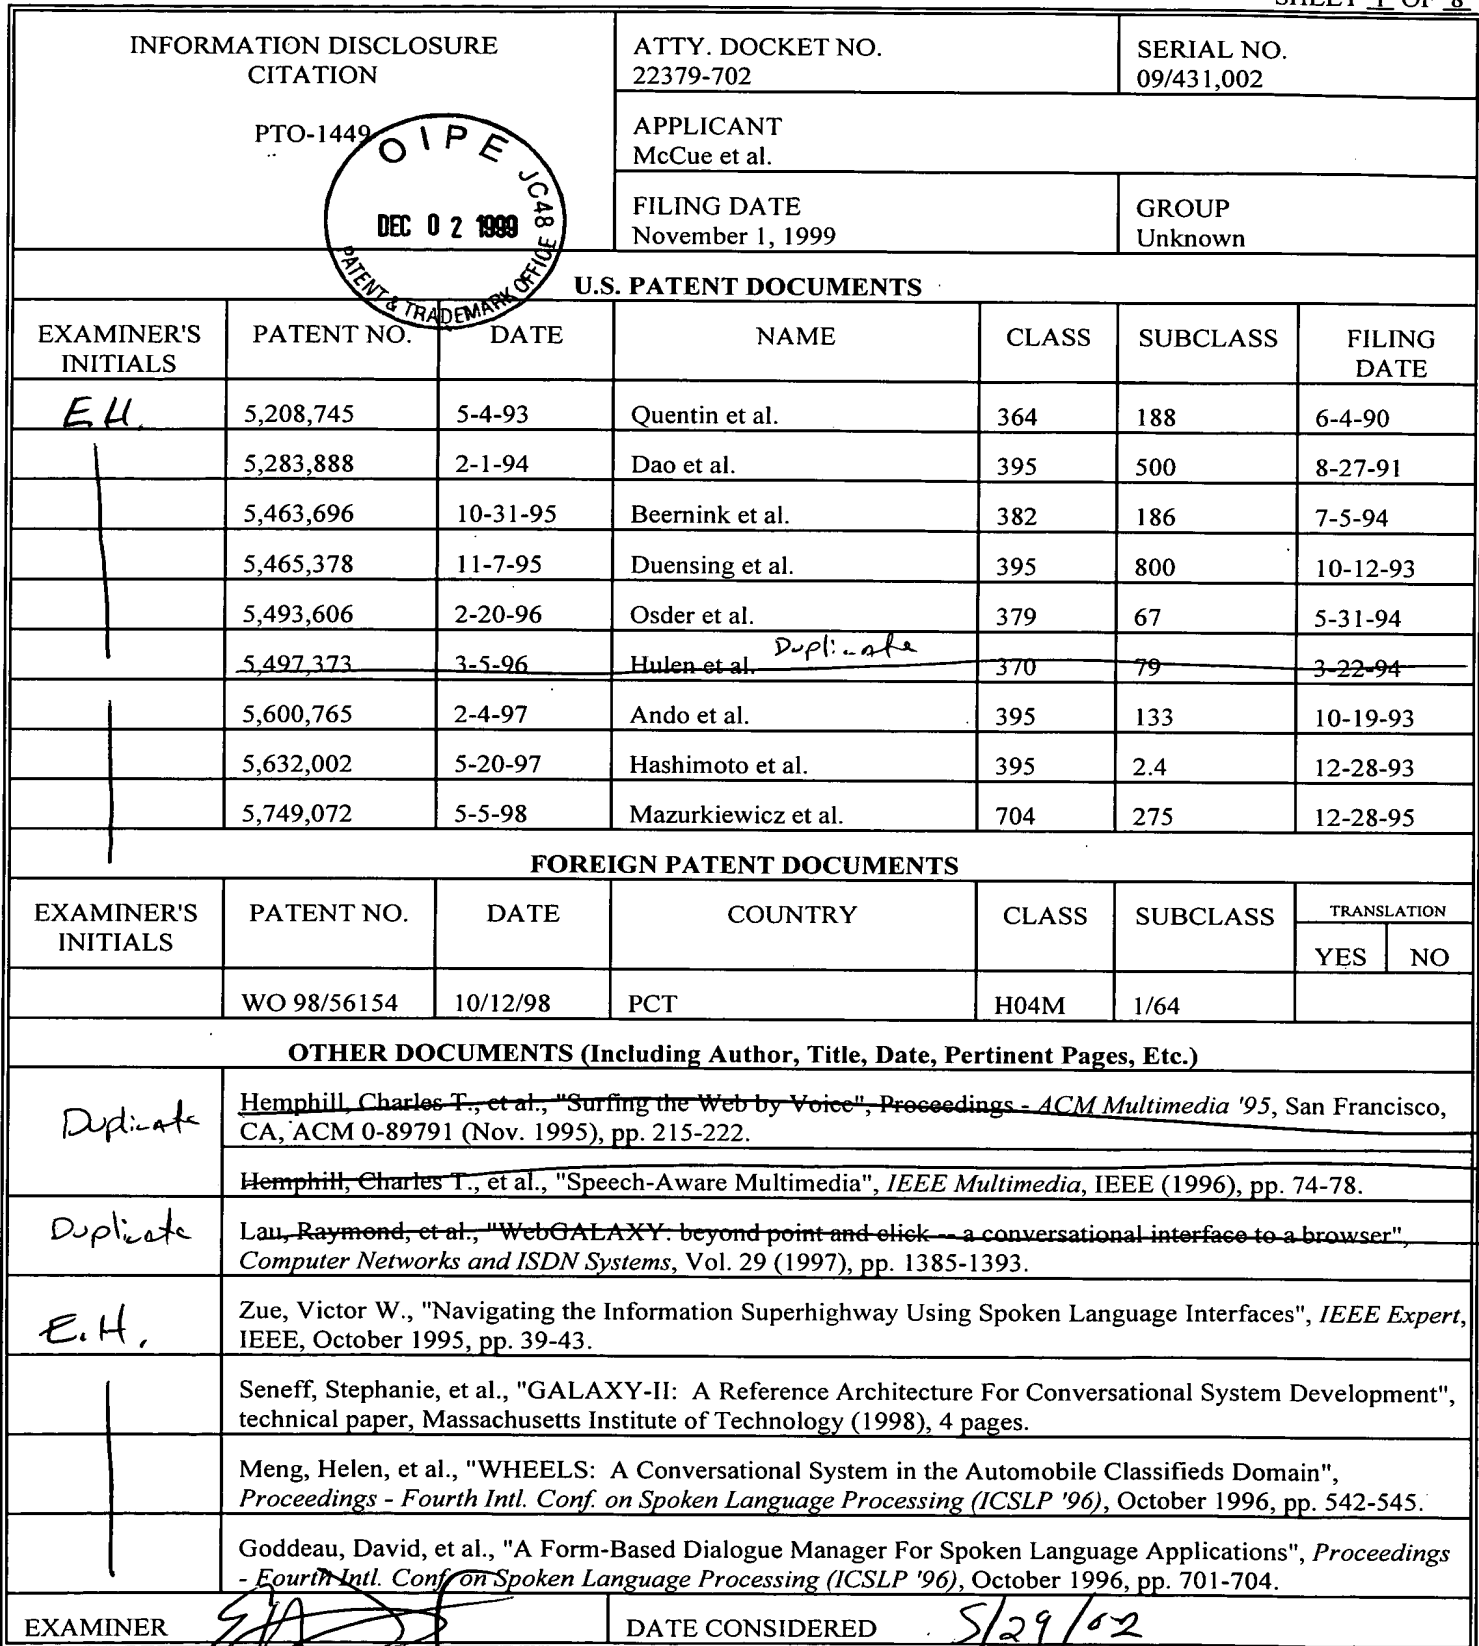 SHEET 1 OF 8
INFORMATION DISCLOSURE
CITATION
PTO-1449
OIPE JC48
DEC 02 1999
PATENT & TRADEMARK OFFICE
ATTY. DOCKET NO.
22379-702
SERIAL NO.
09/431,002
APPLICANT
McCue et al.
FILING DATE
November 1, 1999
GROUP
Unknown
U.S. PATENT DOCUMENTS
EXAMINER'S INITIALS PATENT NO. DATE NAME CLASS SUBCLASS FILING DATE
E.H. 5,208,745 5-4-93 Quentin et al. 364 188 6-4-90
5,283,888 2-1-94 Dao et al. 395 500 8-27-91
5,463,696 10-31-95 Beernink et al. 382 186 7-5-94
5,465,378 11-7-95 Duensing et al. 395 800 10-12-93
5,493,606 2-20-96 Osder et al. 379 67 5-31-94
Duplicate
5,497,373 3-5-96 Hulen et al. 370 79 3-22-94
5,600,765 2-4-97 Ando et al. 395 133 10-19-93
5,632,002 5-20-97 Hashimoto et al. 395 2.4 12-28-93
5,749,072 5-5-98 Mazurkiewicz et al. 704 275 12-28-95
FOREIGN PATENT DOCUMENTS
EXAMINER'S INITIALS PATENT NO. DATE COUNTRY CLASS SUBCLASS TRANSLATION
YES NO
WO 98/56154 10/12/98 PCT H04M 1/64
OTHER DOCUMENTS (Including Author, Title, Date, Pertinent Pages, Etc.)
Duplicate
Hemphill, Charles T., et al., "Surfing the Web by Voice", Proceedings - ACM Multimedia '95, San Francisco,
CA, ACM 0-89791 (Nov. 1995), pp. 215-222.
Hemphill, Charles T., et al., "Speech-Aware Multimedia", IEEE Multimedia, IEEE (1996), pp. 74-78.
Duplicate
Lau, Raymond, et al., "WebGALAXY: beyond point and click -- a conversational interface to a browser",
Computer Networks and ISDN Systems, Vol. 29 (1997), pp. 1385-1393.
E.H.
Zue, Victor W., "Navigating the Information Superhighway Using Spoken Language Interfaces", IEEE Expert,
IEEE, October 1995, pp. 39-43.
Seneff, Stephanie, et al., "GALAXY-II: A Reference Architecture For Conversational System Development",
technical paper, Massachusetts Institute of Technology (1998), 4 pages.
Meng, Helen, et al., "WHEELS: A Conversational System in the Automobile Classifieds Domain",
Proceedings - Fourth Intl. Conf. on Spoken Language Processing (ICSLP '96), October 1996, pp. 542-545.
Goddeau, David, et al., "A Form-Based Dialogue Manager For Spoken Language Applications", Proceedings
- Fourth Intl. Conf. on Spoken Language Processing (ICSLP '96), October 1996, pp. 701-704.
EXAMINER
DATE CONSIDERED 5/29/02